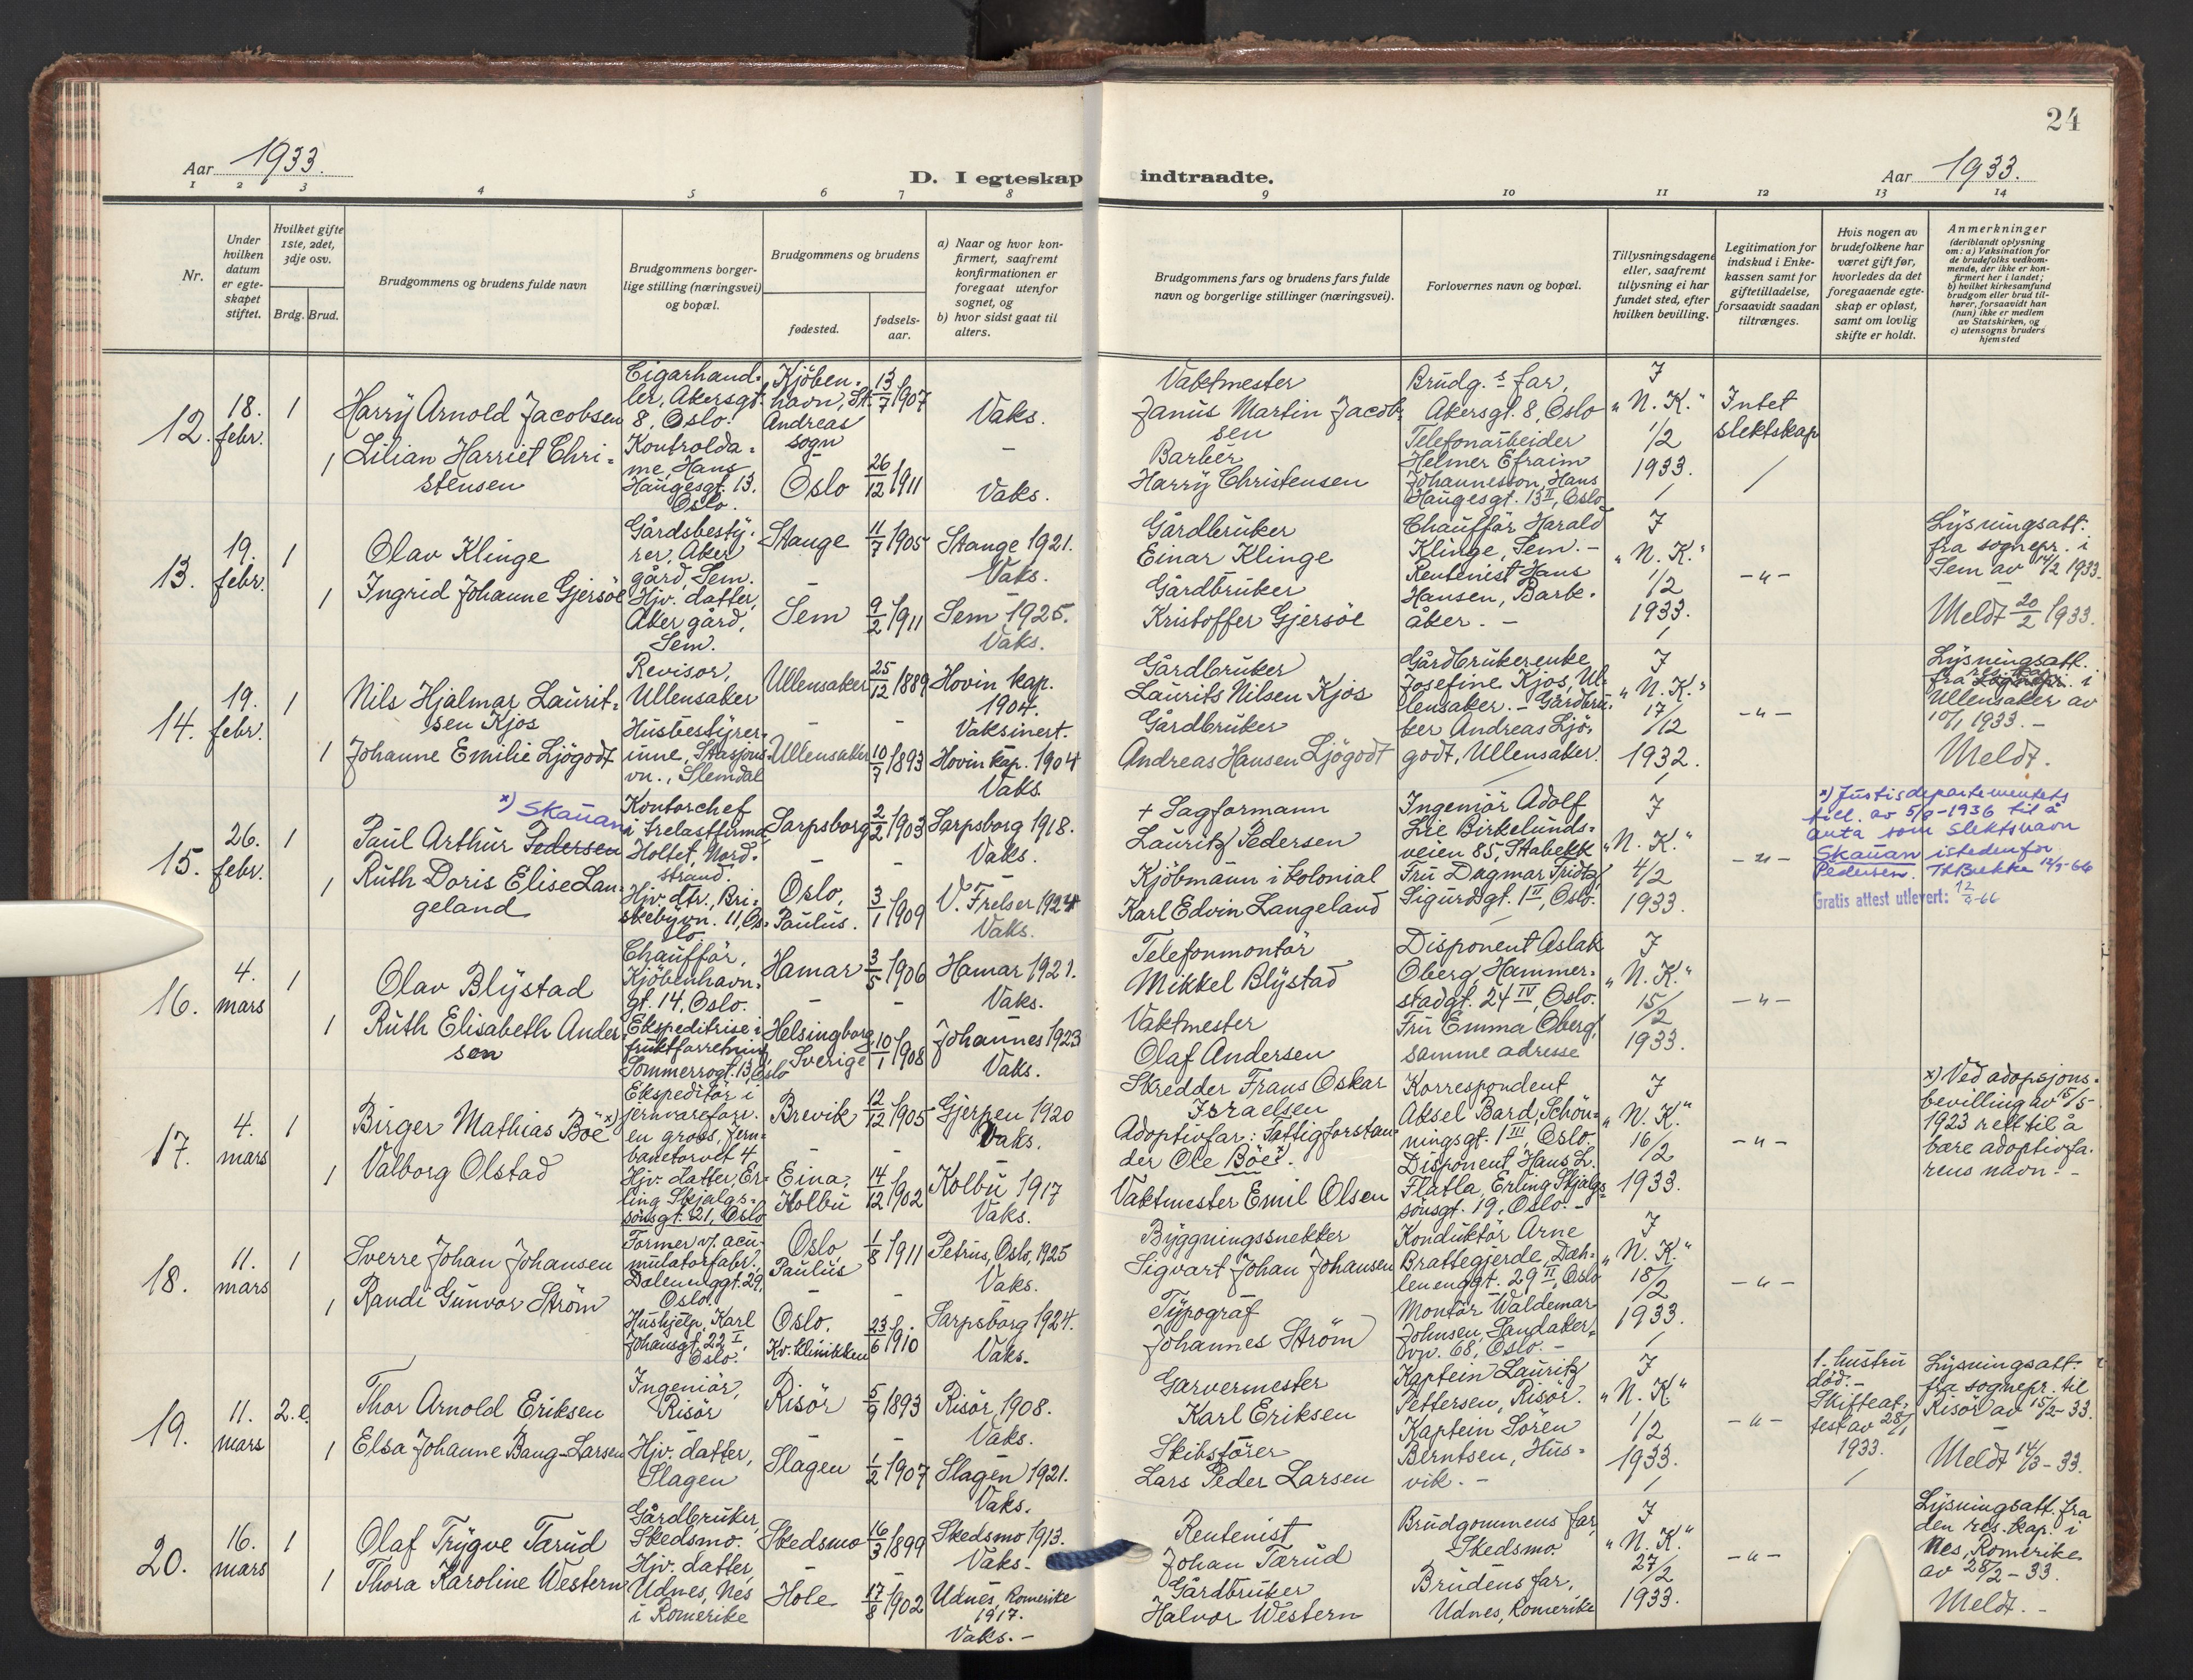 24
Aar 1933.
D. I egteskap indtraadte.
Aar 1933.
1 2 3 4 5 6 7 8 9 10 11 12 13 14
Nr.
Under hvilken datum er egteskapet stiftet.
Hvilket gifte 1ste, 2det, 3dje osv.
Brdg. Brud.
Brudgommens og brudens fulde navn
Brudgommens borgerlige stilling (næringsvei) og bopæl.
Brudgommens og brudens
fødested.
fødselsaar.
a) Naar og hvor konfirmert, saafremt konfirmationen er foregaat utenfor sognet, og
b) hvor sidst gaat til alters.
Brudgommens fars og brudens fars fulde navn og borgerlige stillinger (næringsvei).
Forlovernes navn og bopæl.
Tillysningsdagene eller, saafremt tillysning ei har fundet sted, efter hvilken bevilling.
Legitimation for indskud i Enkekassen samt for giftetilladelse, forsaavidt saadan tiltrænges.
Hvis nogen av brudefolkene har været gift før, hvorledes da det foregaaende egteskap er opløst, samt om lovlig skifte er holdt.
Anmerkninger
(deriblandt oplysning om: a) Vaksination for de brudefolks vedkommende, der ikke er konfirmert her i landet;
b) hvilket kirkesamfund brudgom eller brud tilhører, forsaavidt han (hun) ikke er medlem av Statskirken, og
c) utensogns bruders hjemsted
12. 18. febr. 1
Harry Arnold Jacobsen
Cigarhandler, Akersgt. 8, Oslo.
Kjöbenhavn, St. Andreas sogn
13/7 1907
Vaks.
Vaktmester
Janus Martin Jacobsen
Brudg.s far,
Akersgt. 8, Oslo
I "N. K." 1/2 1933.
Intet slektskap
1 Lilian Harriet Christensen
Kontroldame, Hans Haugesgt. 13. Oslo.
Oslo 26/12 1911
Vaks.
Barber
Harry Christensen
Telefonarbeider
Helmer Efraim
Johannesson, Hans
Haugesgt. 13 II, Oslo
13. 19. febr. 1
Olav Klinge
Gårdsbestyrer, Aker gård, Sem.
Stange 11/7 1905
Stange 1921.
Vaks.
Gårdbruker
Einar Klinge
Chaufför Harald
Klinge, Sem.-
I "N. K." 1/2 1933.
-"-
Lysningsatt.
fra sognepr. i
Sem av 14/2 1933.
Meldt 20/2 1933.
1 Ingrid Johanne Gjersöe
Hjv. datter, Aker gård, Sem.
Sem 9/2 1911
Sem 1925.
Vaks.
Gårdbruker
Kristoffer Gjersöe
Rentenist Hans
Hansen, Barkåker.-
14. 19. febr. 1
Nils Hjalmar Lauritsen Kjos
Revisor, Ullensaker
Ullensaker 25/12 1889
Hovin kap. 1904.
Vaksinert.
Gårdbruker
Laurits Nilsen Kjos
Gårdbrukerenke
Josefine Kjos, Ullensaker.-
I "N. K." 17/12 1932.
-"-
Lysningsatt.
fra i
Ullensaker av
10/1 1933.-
Meldt.
1 Johanne Emilie Ljögodt
Husbestyrerinne, Stasjonsvn., Slemdal
Ullensaker 10/7 1893
Hovin kap. 1904
Vaks.
Gårdbruker
Andreas Hansen Ljögodt
Gårdbruker Andreas Ljögodt, Ullensaker.
15. 26. febr. 1
x) Skauan
Paul Arthur Pedersen
Kontorchef i trelastfirma, Holtet, Nordstrand.
Sarpsborg 2/2 1903
Sarpsborg 1918.
Vaks.
+ Sagformann
Lauritz Pedersen
Ingeniör Adolf
Lie Birkelundsveien 85, Stabekk
I "N. K." 4/2 1933.
-"-
x) Justisdepartementets
till. av 5/9-1936 til å
anta som slektsnavn
Skauan istedenfor
Pedersen.
Gratis attest utlevert: 12/5-66
1 Ruth Doris Elise Langeland
Hjv. dtr., Briskebyvn. 11, Oslo
Oslo, Paulus. 3/1 1909
V. Frelser 1924
Vaks.
Kjöbmann i kolonial
Karl Edvin Langeland
Fru Dagmar Fridtz,
Sigurdsgt. 1 II, Oslo.
16. 4. mars 1
Olav Blystad
Chaufför, Kjöbenhavngt. 14, Oslo.
Hamar 3/5 1906
Hamar 1921.
Vaks.
Telefonmontör
Mikkel Blystad
Disponent Aslak
Oberg, Hammerstadgt. 24 IV, Oslo.
I "N. K." 15/2 1933.
-"-
1 Ruth Elisabeth Andersen
Ekspeditrise i fruktforretning, Sommerrogt. 13, Oslo
Helsingborg, Sverige 10/1 1908
Johannes 1923
Vaks.
Vaktmester
Olaf Andersen
Fru Emma Oberg,
samme adresse
17. 4. mars 1
Birger Mathias Böe x)
Ekspeditör i jernvareforr. en gros, Jernbanetorvet 4
Brevik 12/12 1905
Gjerpen 1920
Vaks.
Skredder Frans Oskar
Israelsen
Adoptivfar: Fattigforstander Ole Böe.
Korrespondent
Aksel Bard, Schönningsgt. 1 III, Oslo.
I "N. K." 16/2 1933.
-"-
x) Ved adopsjonsbevilling av 15/5-
1923 rett til å
bære adoptivfarens navn.-
1 Valborg Olstad
Hjv. datter, Erling Skjalgsönsgt. 21, Oslo
Eina, Kolbu 14/12 1902
Kolbu 1917
Vaks.
Vaktmester Emil Olsen
Disponent Hans Fr.
Flatla, Erling Skjalgsönsgt. 19, Oslo.-
18. 11. mars 1
Sverre Johan Johansen
Former v/. acumulatorfabr., Dælenenggt. 29, Oslo.
Oslo, Paulus 1/8 1911
Petrus, Oslo, 1925
Vaks.
Byggningssnekker
Sigvart Johan Johansen
Konduktör Arne
Brattegjerde, Dælenenggt. 29 II, Oslo
I "N. K." 18/2 1933.
-"-
1 Randi Gunvor Ström
Hushjelp, Karl Johansgt. 22 I, Oslo.
Oslo, Kv. klinikken 23/6 1910
Sarpsborg 1924.
Vaks.
Typograf
Johannes Ström
Montör Waldemar
Johnsen, Sandakervn. 68, Oslo.-
19. 11. mars 2. e.
Thor Arnold Eriksen
Ingeniör, Risör
Risör 5/9 1893
Risör 1908.
Vaks.
Garvermester
Karl Eriksen
Kaptein Lauritz
Pettersen, Risör.
I "N. K." 1/2 1933.
-"-
1. hustru
död.-
Skifteattest av 28/1
1933.
Lysningsatt.
fra sognepr. til
Risör av 15/2-33.
Meldt 14/3-33.
1 Elsa Johanne Baug-Larsen
Hjv. datter, Slagen
Slagen 1/2 1907
Slagen 1921.
Vaks.
Skibsförer
Lars Peder Larsen
Kaptein Sören
Berntsen, Husvik.-
20. 16. mars 1
Olaf Trygve Tærud
Gårdbruker, Skedsmo.
Skedsmo 16/3 1899
Skedsmo 1913.
Vaks.
Rentenist
Johan Tærud
Brudgommens far,
Skedsmo.
I "N. K." 27/2 1933.
-"-
Lysningsatt. fra
den res. kap. i
Nes, Romerike
av 28/2-33.
Meldt.-
1 Thora Karoline Western
Hjv. datter, Udnes, Nes i Romerike
Hole 17/8 1902
Udnes, Romerike 1917.
Vaks.-
Gårdbruker
Halvor Western
Brudens far,
Udnes, Romerike